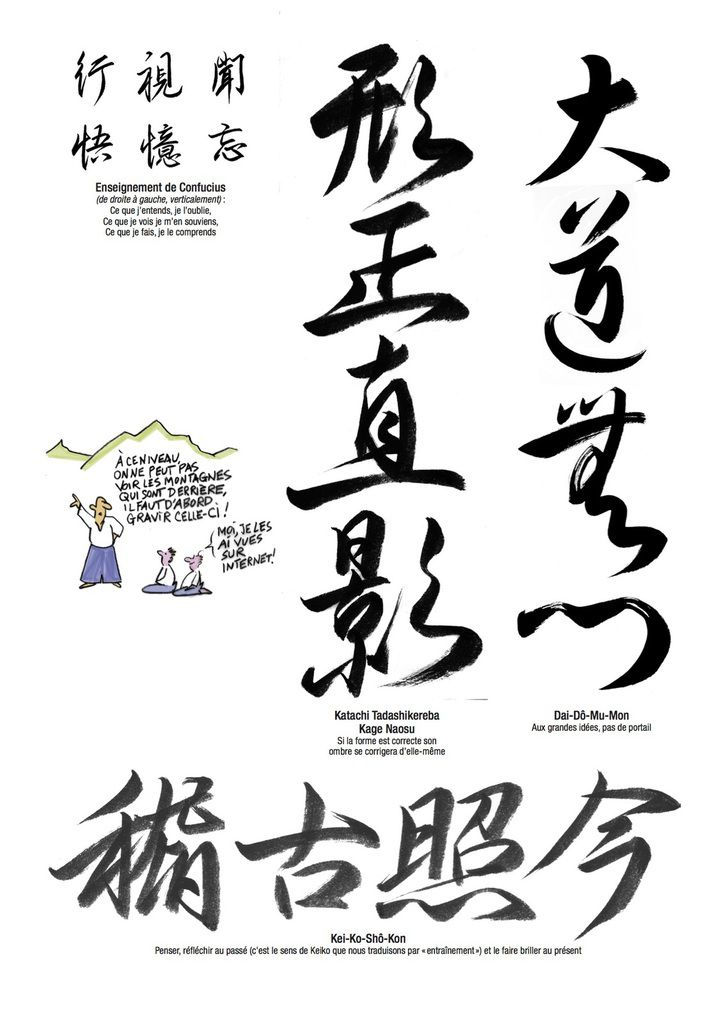 行 視 聞
悟 憶 忘
Enseignement de Confucius
(de droite à gauche, verticalement) :
Ce que j'entends, je l'oublie,
Ce que je vois je m'en souviens,
Ce que je fais, je le comprends
形正直影
Katachi Tadashikereba
Kage Naosu
Si la forme est correcte son
ombre se corrigera d'elle-même
大道無門
Dai-Dô-Mu-Mon
Aux grandes idées, pas de portail
À CE NIVEAU,
ON NE PEUT PAS
VOIR LES MONTAGNES
QUI SONT DERRIÈRE,
IL FAUT D'ABORD
GRAVIR CELLE-CI !
MOI, JE LES
AI VUES
SUR
INTERNET!
稽古照今
Kei-Ko-Shô-Kon
Penser, réfléchir au passé (c'est le sens de Keiko que nous traduisons par « entraînement ») et le faire briller au présent